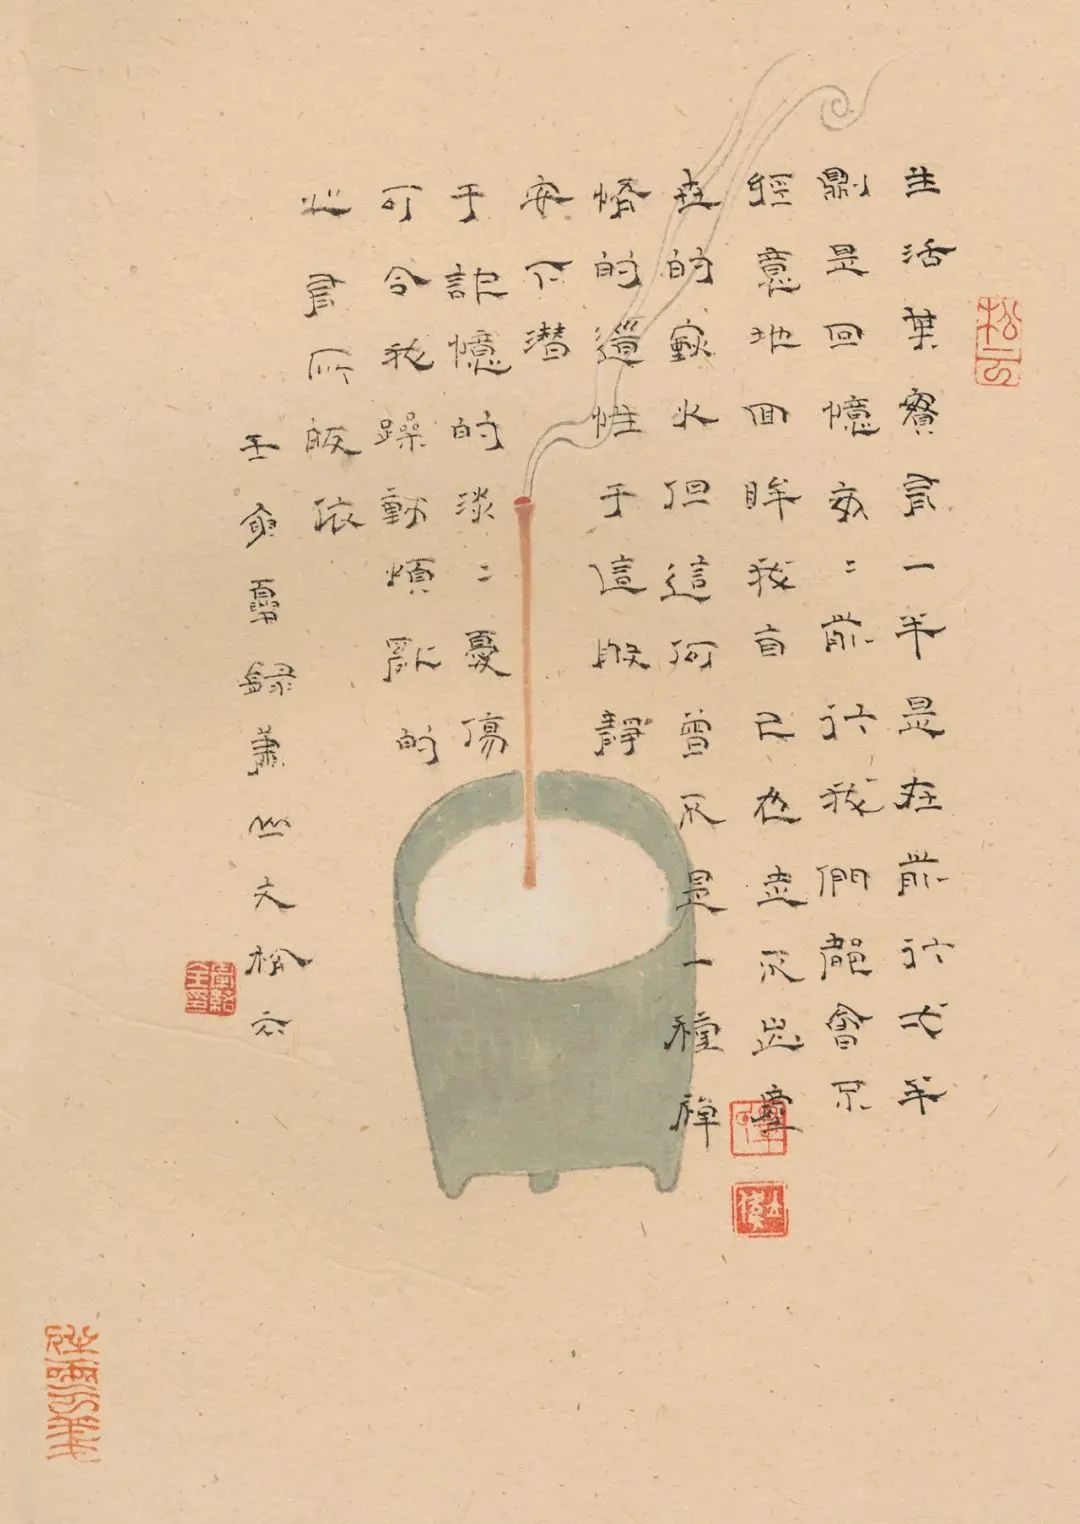 生活其實有一半是在前行弌半
則是回憶每〻前行我們都會不
經意地回眸我自己也走不出塵
世的煙火但這何曾不是一種禪
脩的道惟于這般靜
安下潛
于記憶的淡〻憂傷
可令我躁動煩厭的
心有所皈依
壬寅夏錄蕭文松